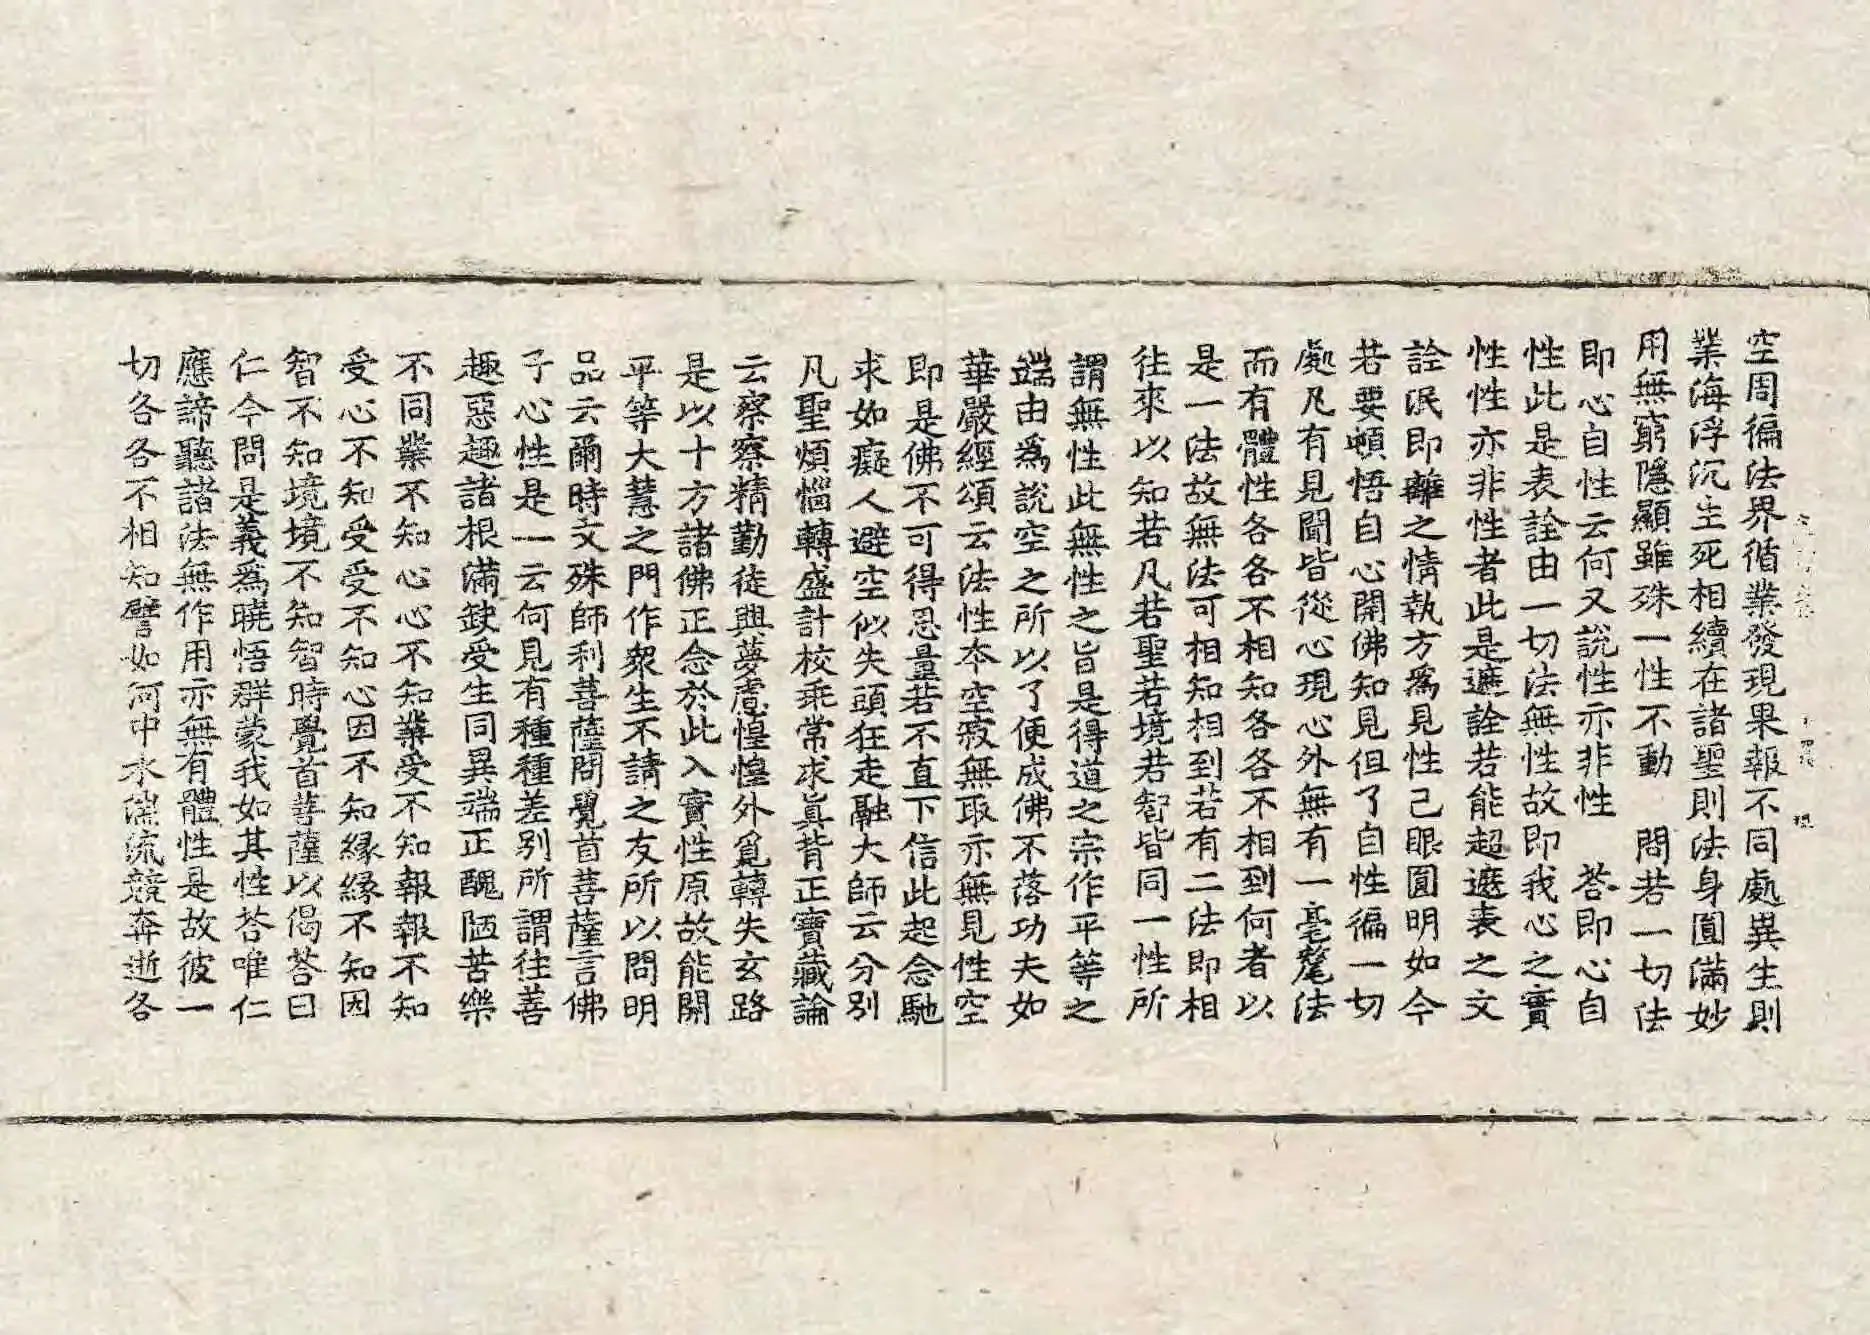 空周徧法界循業發現果報不同處異生則
業海浮沉生死相續在諸聖則法身圓滿妙
用無窮隱顯雖殊一性不動　問若一切法
即心自性云何又說性亦非性　荅即心自
性此是表詮由一切法無性故即我心之實
性性亦非性者此是遮詮若能超遮表之文
詮泯即離之情執方爲見性己眼圓明如今
若要頓悟自心開佛知見但了自性徧一切
處凡有見聞皆從心現心外無有一毫氂法
而有體性各各不相知各各不相到何者以
是一法故無法可相知相到若有二法即相
徃來以知若凡若聖若境若智皆同一性所
謂無性此無性之旨是得道之宗作平等之
端由爲說空之所以了便成佛不落功夫如
華嚴經頌云法性本空寂無取亦無見性空
即是佛不可得思量若不直下信此起念馳
求如癡人避空似失頭狂走融大師云分別
凡聖煩惱轉盛計校乖常求眞背正寶藏論
云察察精勤徒興夢慮惶惶外覓轉失玄路
是以十方諸佛正念於此入實性原故能開
平等大慧之門作衆生不請之友所以問明
品云爾時文殊師利菩薩問覺首菩薩言佛
子心性是一云何見有種種差別所謂徃善
趣惡趣諸根滿缺受生同異端正醜陋苦樂
不同業不知心心不知業受不知報報不知
受心不知受受不知心因不知緣緣不知因
智不知境境不知智時覺首菩薩以偈荅曰
仁今問是義爲曉悟群蒙我如其性荅唯仁
應諦聽諸法無作用亦無有體性是故彼一
切各各不相知譬如河中水湍流競奔逝各